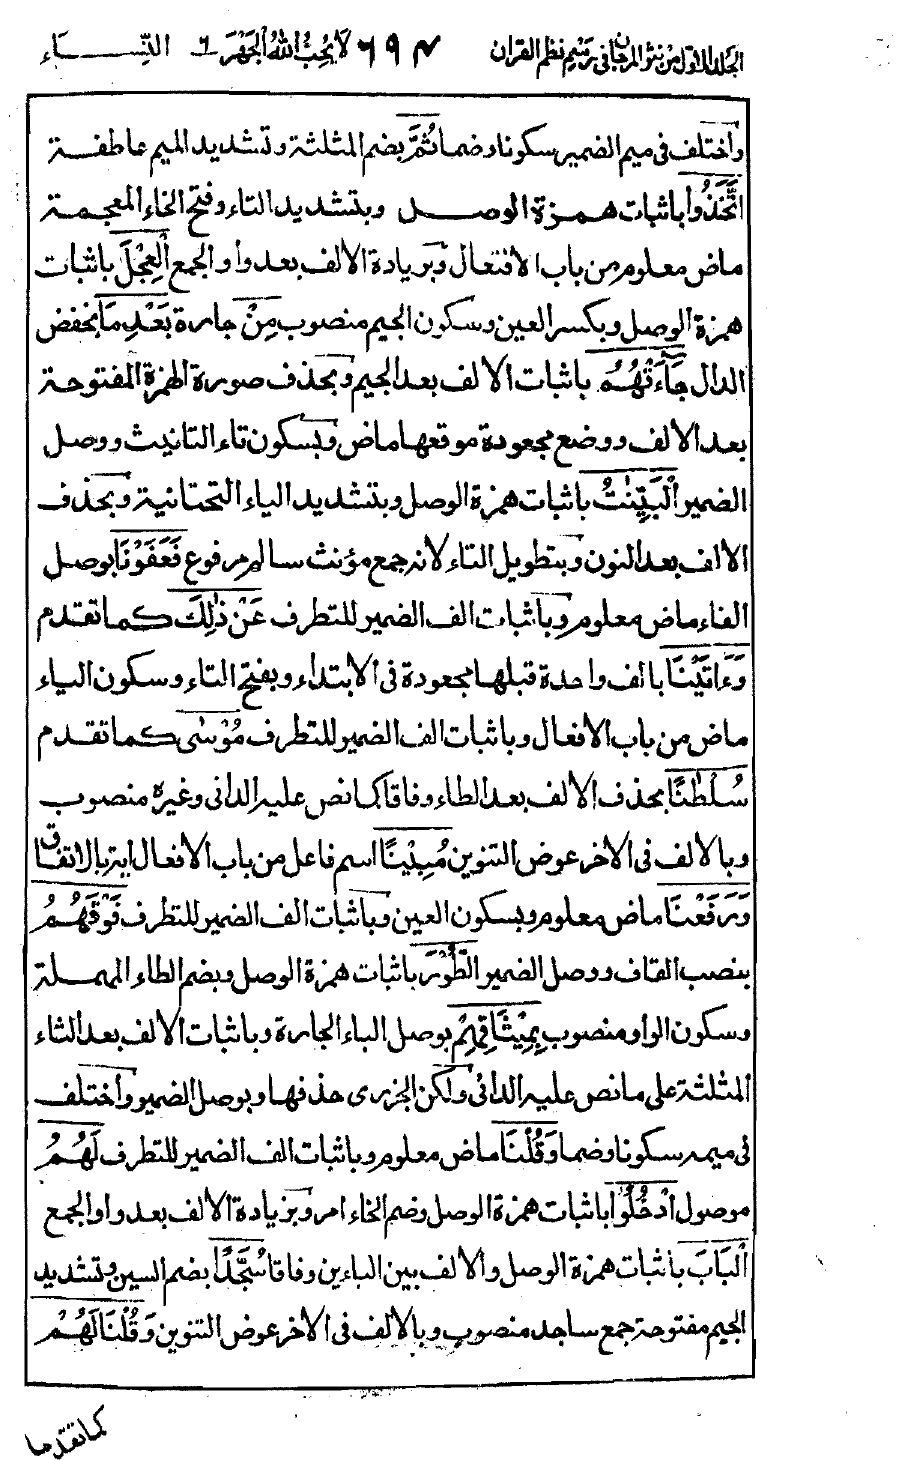 الجلد الاول من نثر المرجان في رسم نظم القران ٦٩٣ لا يحب الله الجهر ٦ النساء
واختلف في ميم الضمير سكونا وضما ثُمَّ بضم المثلثة وتشديد الميم عاطفة
اتَّخَذُوا باثبات همزة الوصل وبتشديد التاء وفتح الخاء المعجمة
ماض معلوم من باب الافتعال وبزيادة الالف بعد واو الجمع الْعِجْلَ باثبات
همزة الوصل وبكسر العين وسكون الجيم منصوب مِنْ جارة بَعْدِ مَا بخفض
الدال جَآءَتْهُمُ باثبات الالف بعد الجيم وبحذف صورة الهمزة المفتوحة
بعد الالف ووضع مجعودة موقعها ماض وبسكون تاء التانيث ووصل
الضمير الْبَيِّنٰتُ باثبات همزة الوصل وبتشديد الياء التحتانية وبحذف
الالف بعد النون وبتطويل التاء لانه جمع مؤنث سالم مرفوع فَعَفَوْنَا بوصل
الفاء ماض معلوم وباثبات الف الضمير للتطرف عَنْ ذٰلِكَ كما تقدم
وَءَاتَيْنَا بالف واحدة قبلها مجعودة في الابتداء وبفتح التاء وسكون الياء
ماض من باب الافعال وباثبات الف الضمير للتطرف مُوْسٰى كما تقدم
سُلْطٰنًا بحذف الالف بعد الطاء وفاقا كما نص عليه الداني وغيره منصوب
وبالالف في الاخر عوض التنوين مُبِيْنًا اسم فاعل من باب الافعال اية بالاتفاق
وَرَفَعْنَا ماض معلوم وبسكون العين وباثبات الف الضمير للتطرف فَوْقَهُمُ
بنصب القاف ووصل الضمير الطُّوْرَ باثبات همزة الوصل وبضم الطاء المهملة
وسكون الواو منصوب بِمِيْثَاقِهِمْ بوصل الباء الجارة وباثبات الالف بعد الثاء
المثلثة على ما نص عليه الداني ولكن الجزري حذفها وبوصل الضمير واختلف
في ميمه سكونا وضما وَقُلْنَا ماض معلوم وباثبات الف الضمير للتطرف لَهُمُ
موصول ادْخُلُوا باثبات همزة الوصل وضم الخاء امر وبزيادة الالف بعد واو الجمع
الْبَابَ باثبات همزة الوصل والالف بين الباءين وفاقا سُجَّدًا بضم السين وتشديد
الجيم مفتوحة جمع ساجد منصوب وبالالف في الاخر عوض التنوين وَقُلْنَا لَهُمْ
كما تقدما